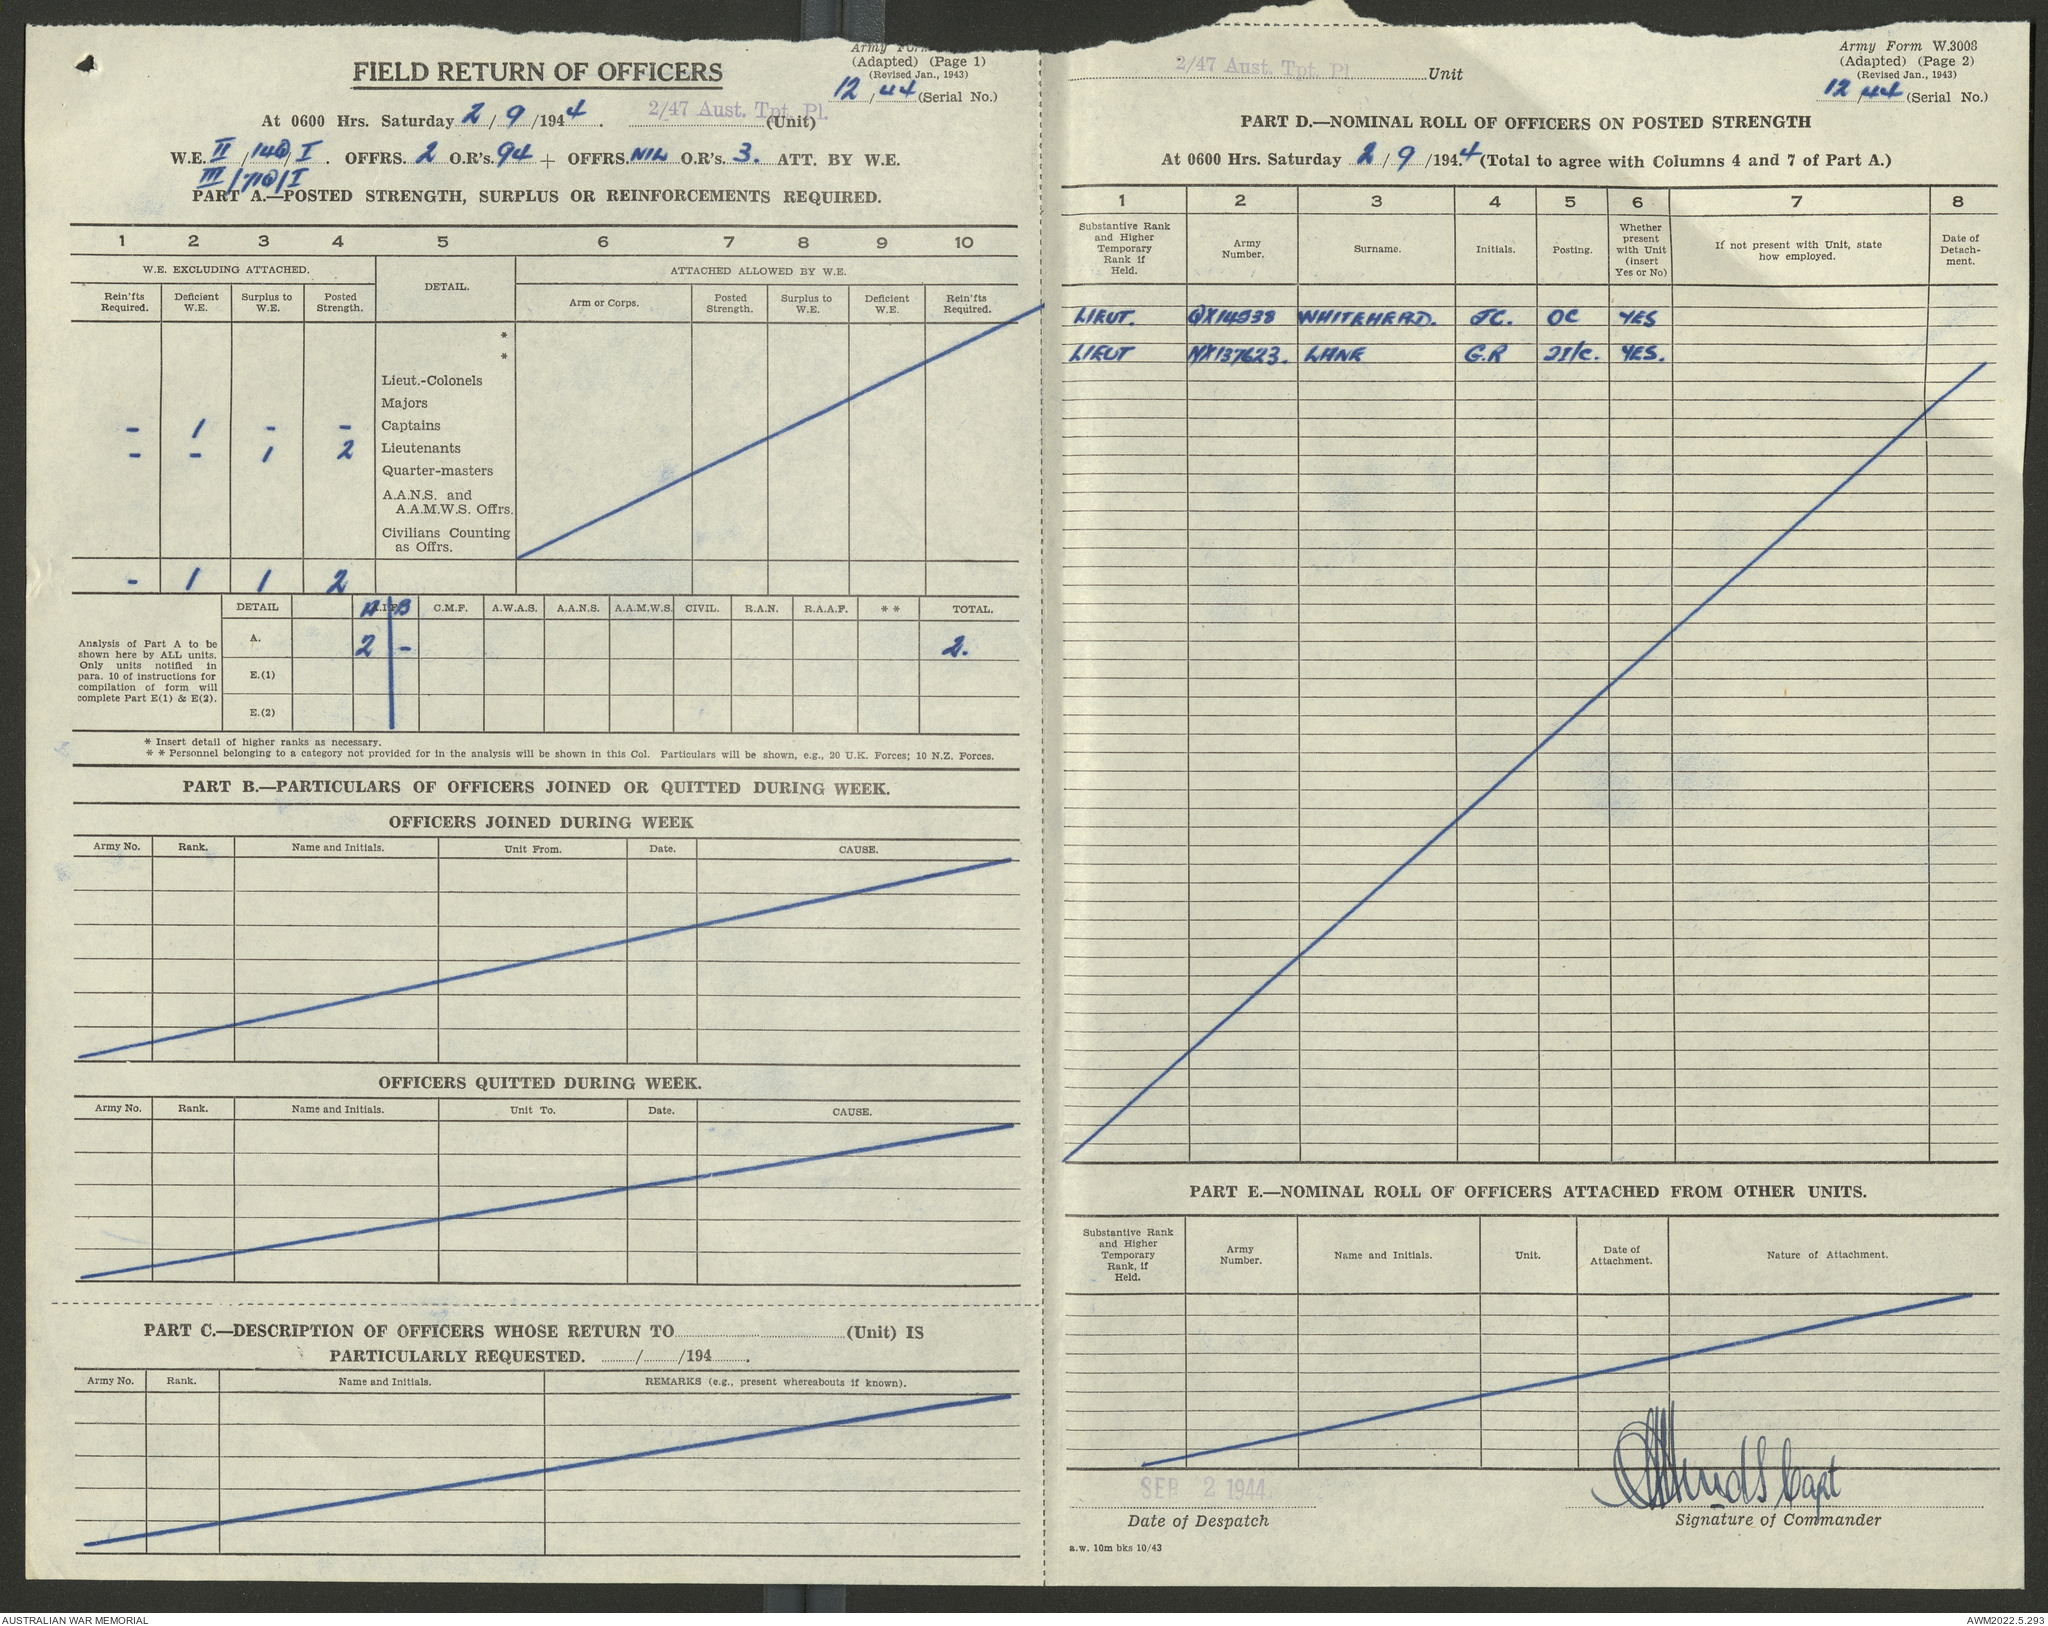 Army
(Adapted) (Page 1)
(Revised Jan., 1943)
12/44 (Serial No.)
FIELD RETURN OF OFFICERS
At 0600 Hrs. Saturday 2/9/1944. 2/47 Aust. Tpt. Pl. (Unit)
W.E. II/14@/I. OFFRS. 2 O.R's. 94 + OFFRS. NIL O.R's. 3. ATT. BY W.E.
III/71@/I
PART A.—POSTED STRENGTH, SURPLUS OR REINFORCEMENTS REQUIRED.
1 2 3 4 5 6 7 8 9 10
W.E. EXCLUDING ATTACHED. DETAIL. ATTACHED ALLOWED BY W.E.
Rein'fts Required. Deficient W.E. Surplus to W.E. Posted Strength. Arm or Corps. Posted Strength. Surplus to W.E. Deficient W.E. Rein'fts Required.
*
*
Lieut.-Colonels
Majors
- 1 - - Captains
- - 1 2 Lieutenants
Quarter-masters
A.A.N.S. and
A.A.M.W.S. Offrs.
Civilians Counting
as Offrs.
- 1 1 2
DETAIL A B C.M.F. A.W.A.S. A.A.N.S. A.A.M.W.S. CIVIL. R.A.N. R.A.A.F. * * TOTAL.
Analysis of Part A to be
shown here by ALL units.
Only units notified in
para. 10 of instructions for
compilation of form will
complete Part E(1) & E(2).
A. 2 - 2.
E.(1)
E.(2)
* Insert detail of higher ranks as necessary.
* * Personnel belonging to a category not provided for in the analysis will be shown in this Col. Particulars will be shown, e.g., 20 U.K. Forces; 10 N.Z. Forces.
PART B.—PARTICULARS OF OFFICERS JOINED OR QUITTED DURING WEEK.
OFFICERS JOINED DURING WEEK
Army No. Rank. Name and Initials. Unit From. Date. CAUSE.
OFFICERS QUITTED DURING WEEK.
Army No. Rank. Name and Initials. Unit To. Date. CAUSE.
PART C.—DESCRIPTION OF OFFICERS WHOSE RETURN TO (Unit) IS
PARTICULARLY REQUESTED. / /194 .
Army No. Rank. Name and Initials. REMARKS (e.g., present whereabouts if known).
2/47 Aust. Tpt. Pl. Unit
Army Form W.3008
(Adapted) (Page 2)
(Revised Jan., 1943)
12/44 (Serial No.)
PART D.—NOMINAL ROLL OF OFFICERS ON POSTED STRENGTH
At 0600 Hrs. Saturday 2/9/1944 (Total to agree with Columns 4 and 7 of Part A.)
1 2 3 4 5 6 7 8
Substantive Rank and Higher Temporary Rank if Held. Army Number. Surname. Initials. Posting. Whether present with Unit (insert Yes or No) If not present with Unit, state how employed. Date of Detachment.
LIEUT. QX14538 WHITEHEAD. JC. OC YES
LIEUT NX137623. LANE G.R 2I/C. YES.
PART E.—NOMINAL ROLL OF OFFICERS ATTACHED FROM OTHER UNITS.
Substantive Rank and Higher Temporary Rank, if Held. Army Number. Name and Initials. Unit. Date of Attachment. Nature of Attachment.
SEP 2 1944
Capt
Date of Despatch Signature of Commander
a.w. 10m bks 10/43
AUSTRALIAN WAR MEMORIAL AWM2022.5.293